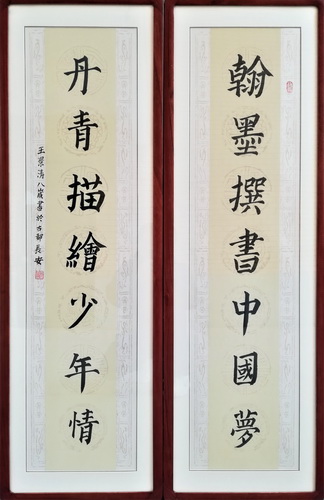 翰墨撰書中國夢
丹青描繪少年情
八歲書於古都長安